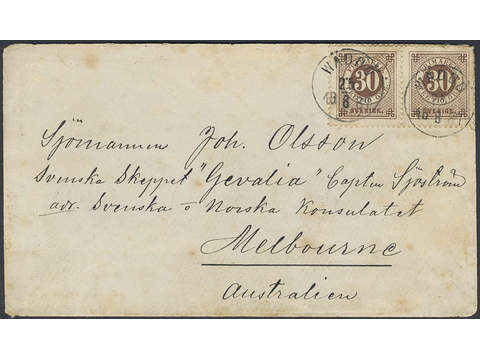 30 30
SVERIGE. SVERIGE.
Sjömannen Joh. Olsson
Svenska Skeppet "Gevalia" Capten Sjöström
adr. Svenska o Norska Konsulatet
Melbourne
Australien